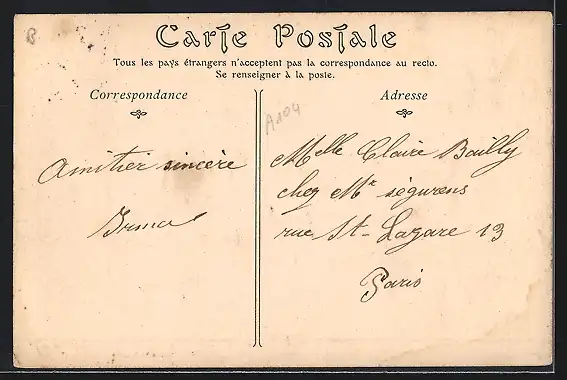 B
Carte Postale
Tous les pays étrangers n'acceptent pas la correspondance au recto.
Se renseigner à la poste.
Correspondance
Adresse
A104
Amitier sincère
Irma
Melle Claire Bailly
chez Mr ségurens
rue St-Lazare 13
Paris